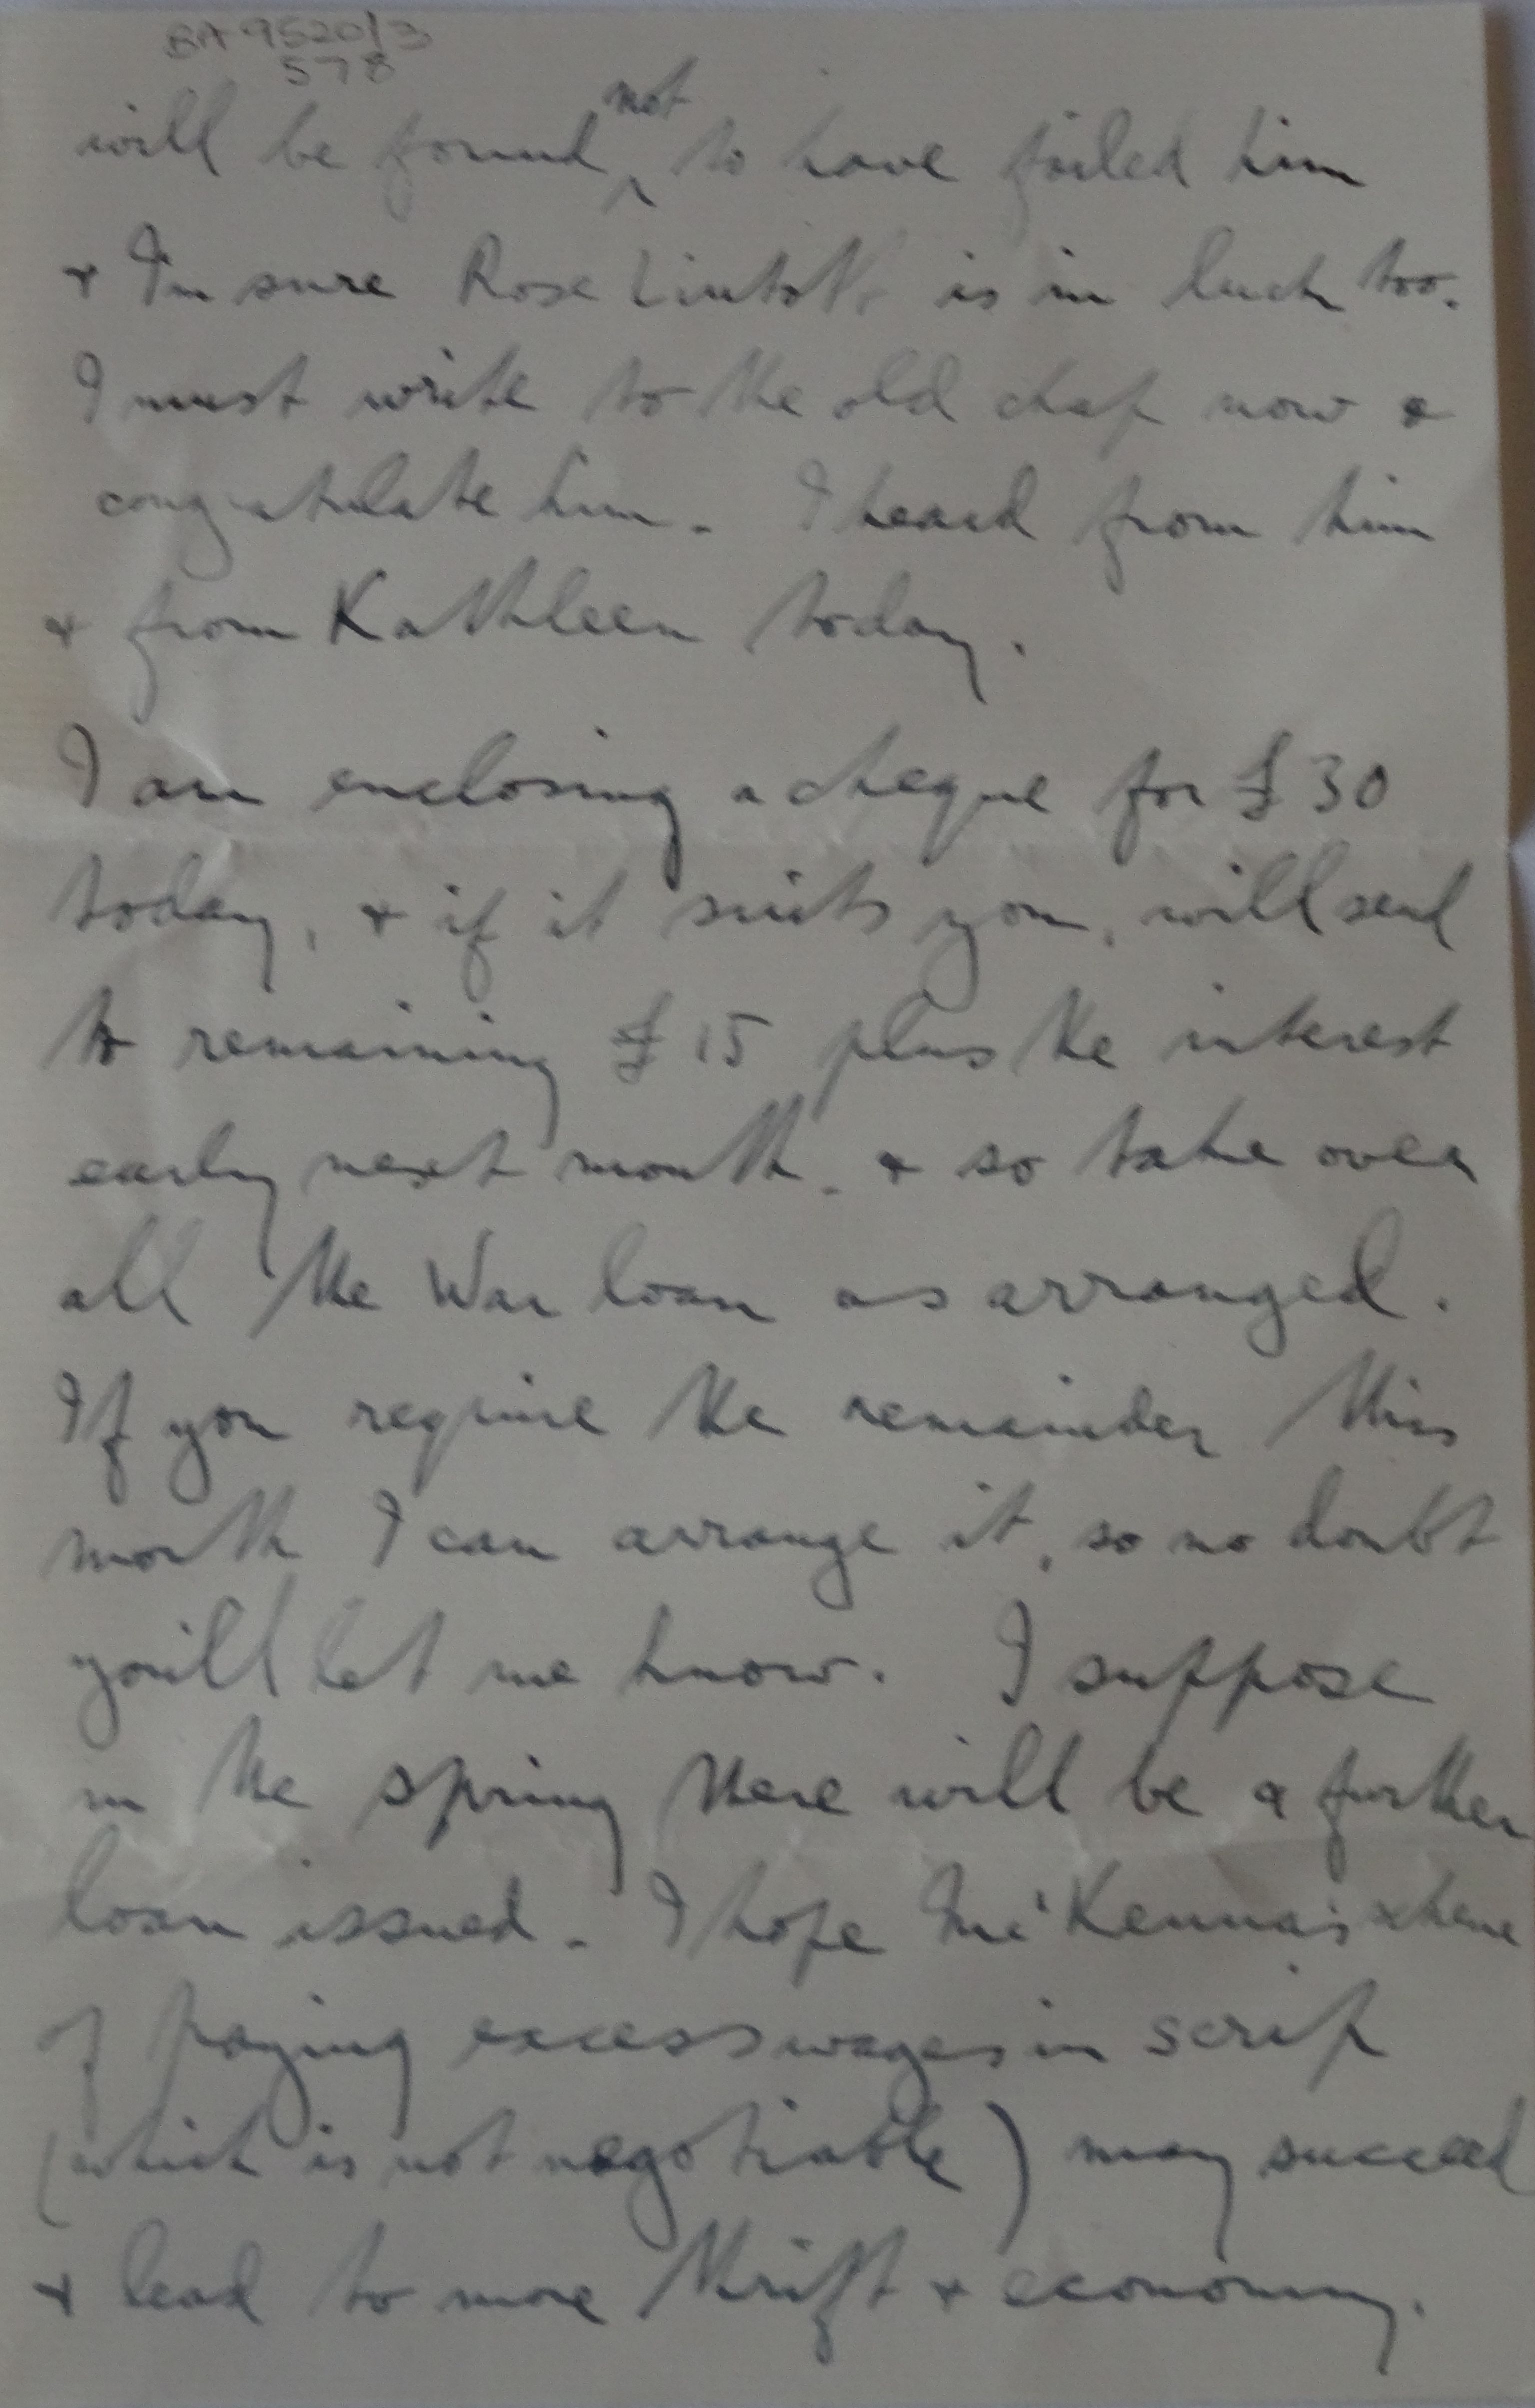 BA 9520/3
578
will be found not to have failed him
+ I'm sure Rose is in luck too.
I must write to the old chap now &
congratulate him. I heard from him
+ from Kathleen today.
I am enclosing a cheque for £30
today, + if it suits you, will send
remaining £15 plus the interest
early next month. + so take over
all the War loan as arranged.
If you require the remainder this
month I can arrange it, so no doubt
you'll let me know. I suppose
in the spring there will be a further
loan issued. I hope Mc'Kenna's scheme
of paying excess wages in scrip
(which is not negotiable) may succeed
+ lead to more thrift + economy.